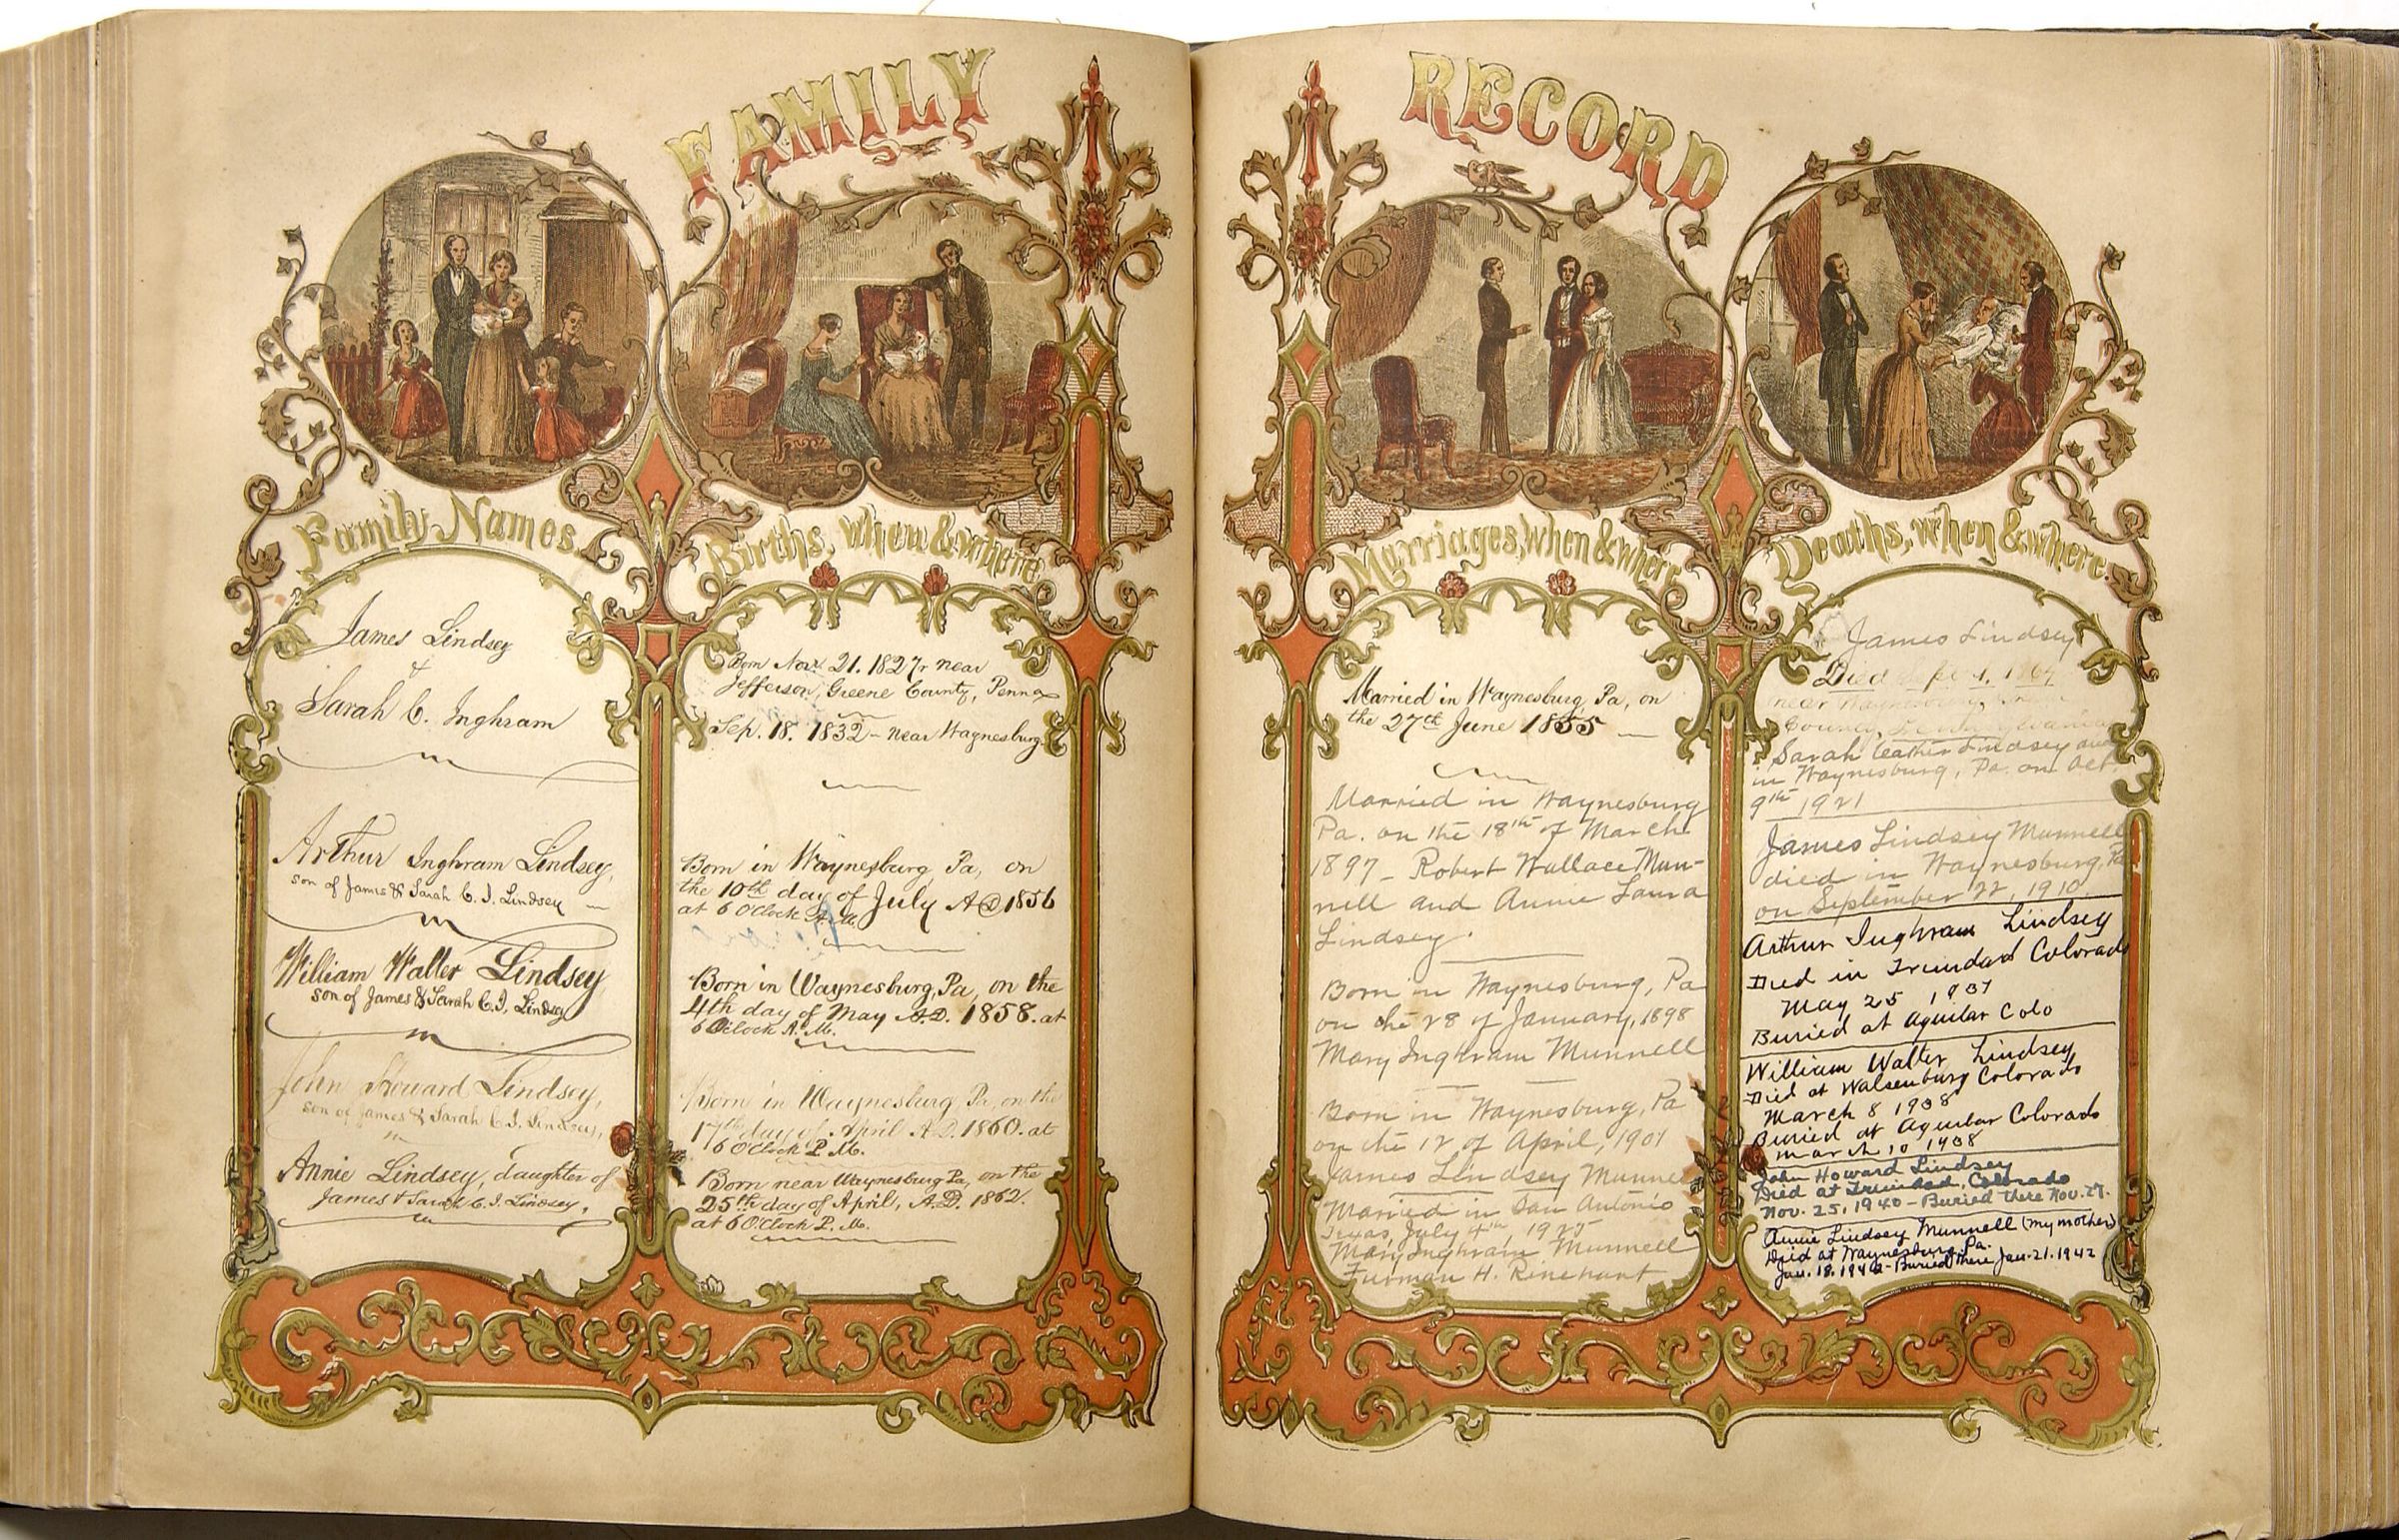 FAMILY RECORD
Family Names.
James Lindsey
&
Sarah C. Inghram
Arthur Inghram Lindsey,
son of James & Sarah C. I. Lindsey
William Walter Lindsey
son of James & Sarah C. I. Lindsey
John Howard Lindsey,
son of James & Sarah C. I. Lindsey,
Annie Lindsey, daughter of
James & Sarah C. I. Lindsey,
Births, when & where
Born Nov. 21. 1827, near
Jefferson, Greene County, Penna
Sep. 18. 1832 - near Waynesburg
Born in Waynesburg, Pa, on
the 10th day of July AD 1856
at 6 O'Clock A.M.
Born in Waynesburg, Pa, on the
4th day of May A.D. 1858. at
6 O'Clock A.M.
Born in Waynesburg Pa, on the
17th day of April A.D. 1860. at
6 O'Clock P. M.
Born near Waynesburg Pa, on the
25th day of April, A.D. 1862.
at 6 O'Clock P. M.
Marriages, when & where
Married in Waynesburg, Pa, on
the 27th June 1855
Married in Waynesburg
Pa. on the 18th of March
1897 - Robert Wallace Mun-
nell and Annie Laura
Lindsey.
Born in Waynesburg, Pa
on the 28 of January, 1898
Mary Inghram Munnell
Born in Waynesburg, Pa
on the 12 of April, 1901
James Lindsey Munnell
Married in San Antonio
Texas, July 4th 1925
Mary Inghram Munnell
Furman H. Rinehart
Deaths, when & where.
James Lindsey
Died Sept 1, 186
near Waynesburg,
County, Pennsylvania
Sarah Lindsey died
in Waynesburg, Pa. on Oct.
9th 1921
James Lindsey Munnell
died in Waynesburg, Pa
on September 22, 1910.
Arthur Inghram Lindsey
Died in Trinidad Colorado
May 25 1937
Buried at Aguilar Colo
William Walter Lindsey
Died at Walsenburg Colorado
March 8 1938
Buried at Aguilar Colorado
March 10 1938
John Howard Lindsey
Died at Trinidad, Colorado
Nov. 25, 1940 - Buried there Nov. 27.
Annie Lindsey Munnell (my mother)
Died at Waynesburg, Pa.
Jan. 18. 1942 - Buried there Jan. 21. 1942